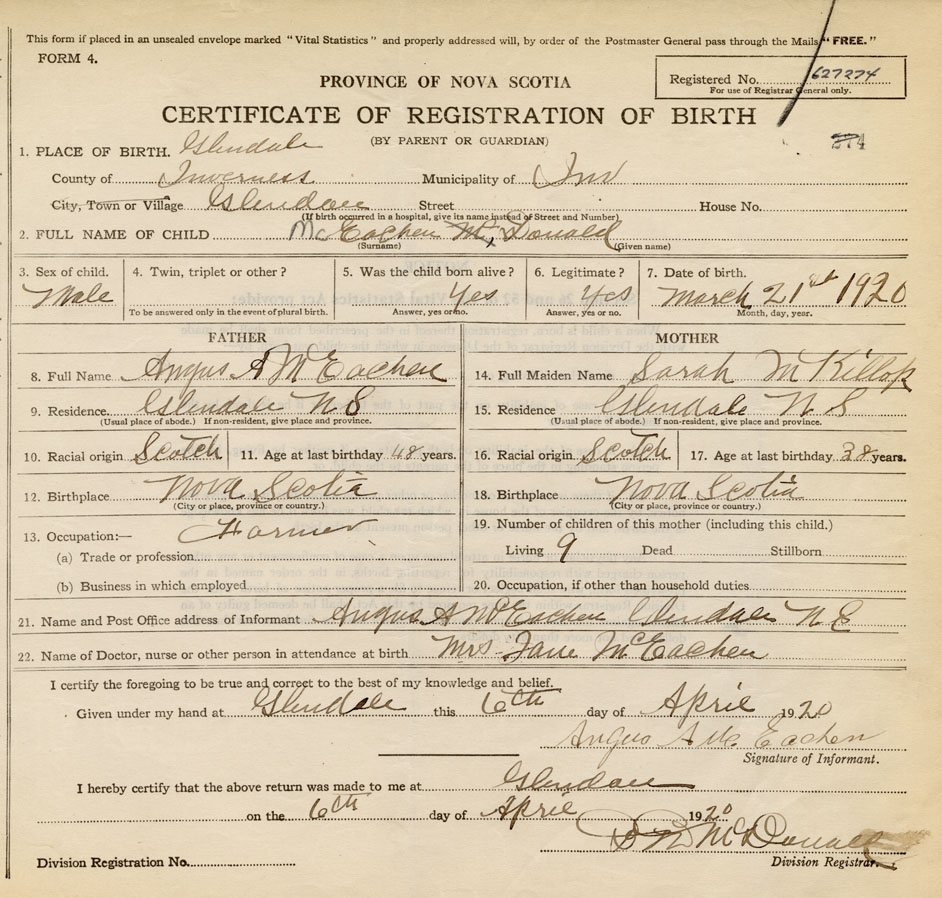 This form if placed in an unsealed envelope marked "Vital Statistics" and properly addressed will, by order of the Postmaster General pass through the Mails "FREE."
FORM 4.
PROVINCE OF NOVA SCOTIA
Registered No. 627274
For use of Registrar General only.
CERTIFICATE OF REGISTRATION OF BIRTH
(BY PARENT OR GUARDIAN)
1. PLACE OF BIRTH. Glendale
County of Inverness Municipality of Inv
City, Town or Village Glendale Street House No.
(If birth occurred in a hospital, give its name instead of Street and Number)
2. FULL NAME OF CHILD McEachen Donald
(Surname) (Given name)
3. Sex of child. 4. Twin, triplet or other? 5. Was the child born alive? 6. Legitimate? 7. Date of birth.
Male Yes Yes March 21st 1920
To be answered only in the event of plural birth. Answer, yes or no. Answer, yes or no. Month, day, year.
FATHER MOTHER
8. Full Name Angus A McEachen 14. Full Maiden Name Sarah McKillop
9. Residence. Glendale N S 15. Residence Glendale N S
(Usual place of abode.) If non-resident, give place and province. (Usual place of abode.) If non-resident, give place and province.
10. Racial origin Scotch 11. Age at last birthday 48 years. 16. Racial origin Scotch 17. Age at last birthday 38 years.
12. Birthplace Nova Scotia 18. Birthplace Nova Scotia
(City or place, province or country.) (City or place, province or country.)
13. Occupation:— Farmer 19. Number of children of this mother (including this child.)
(a) Trade or profession Living 9 Dead Stillborn
(b) Business in which employed 20. Occupation, if other than household duties
21. Name and Post Office address of Informant Angus A McEachen Glendale N S
22. Name of Doctor, nurse or other person in attendance at birth Mrs Jane McEachen
I certify the foregoing to be true and correct to the best of my knowledge and belief.
Given under my hand at Glendale this 6th day of April 1920
Angus A Mc Eachen
Signature of Informant.
I hereby certify that the above return was made to me at Glendale
on the 6th day of April 1920
McDonald
Division Registration No. Division Registrar.